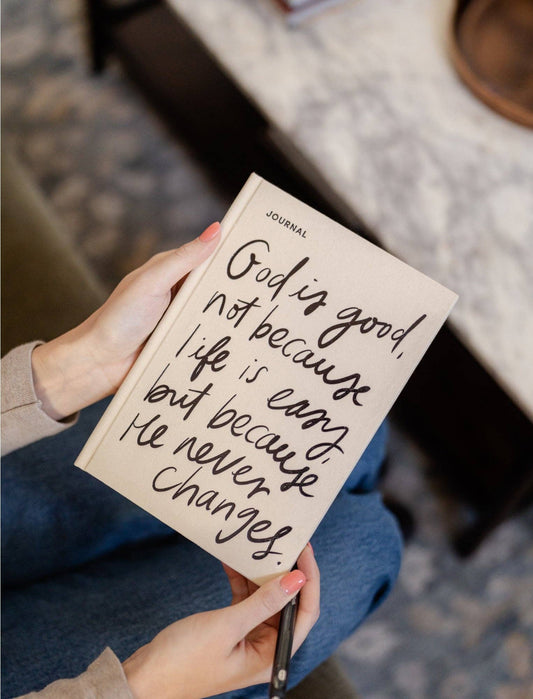 JOURNAL
God is good,
not because
life is easy,
but because
He never
changes.